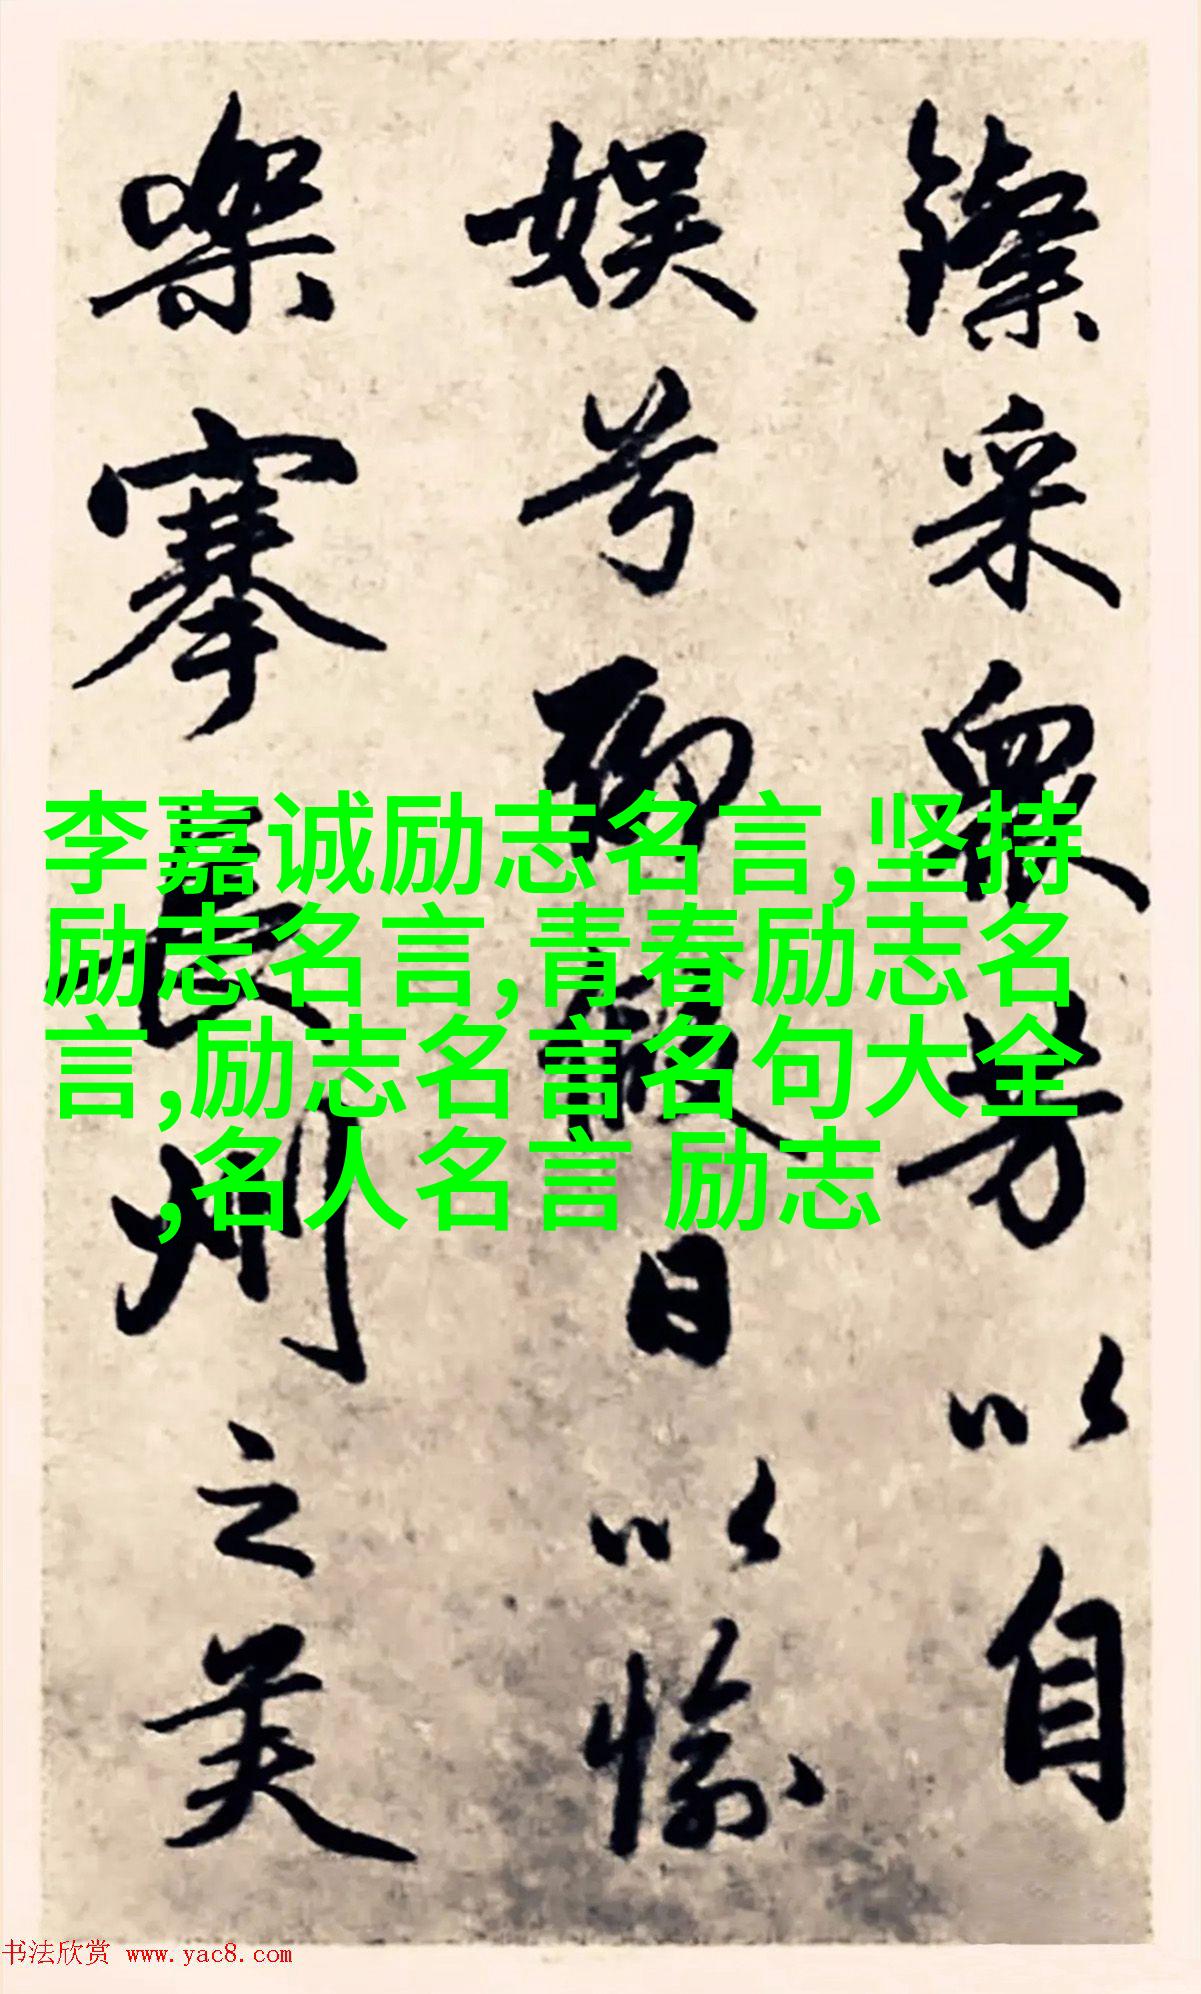 鑗采眾芳以自
娱兮聊假日以愉
樂搴長洲之美
李嘉诚励志名言,坚持
励志名言,青春励志名
言,励志名言名句大全
,名人名言 励志
书法欣赏 www.yac8.com